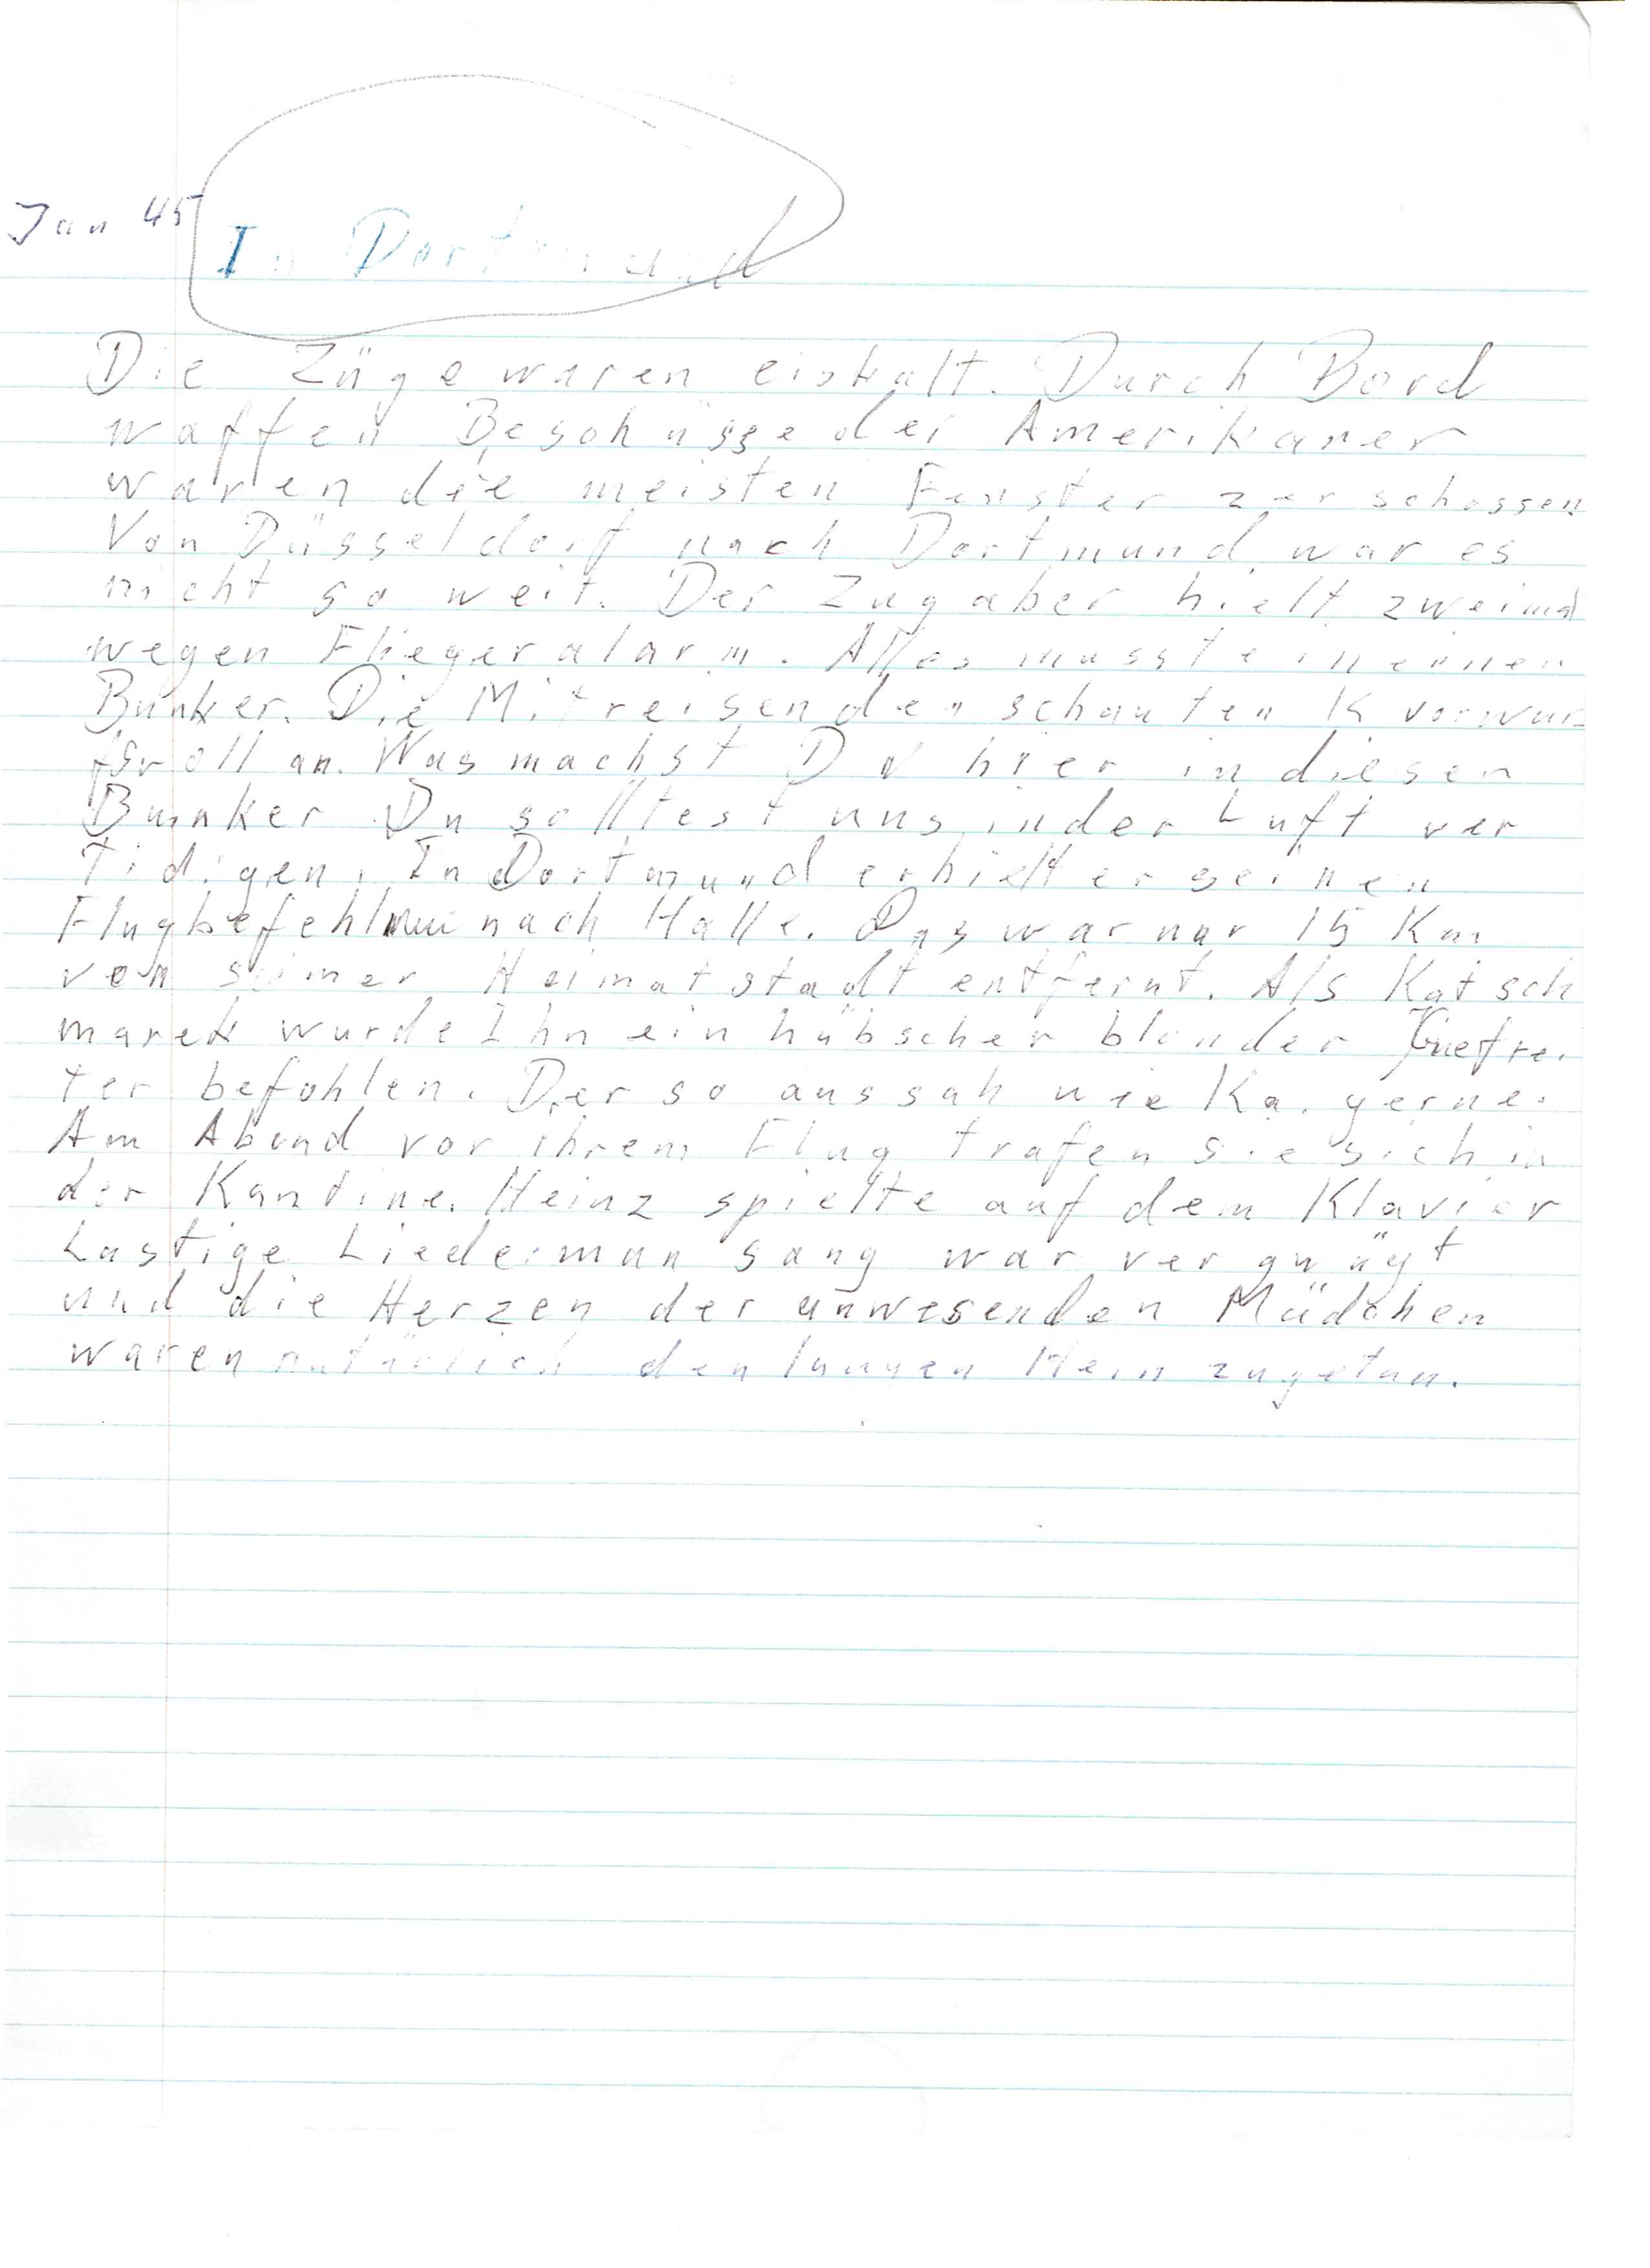 Jan 45
In Dortmund
Die Züge waren eiskalt. Durch Bord
waffen Beschüsse der Amerikaner
waren die meisten Fenster zerschossen
Von Düsseldorf nach Dortmund war es
nicht so weit. Der Zug aber hielt zweimal
wegen Fliegeralarm. Alles musste in einen
Bunker. Die Mitreisenden schauten K vorwur-
fsvoll an. Was machst Du hier in diesen
Bunker Du solltest uns in der Luft ver
tidigen. In Dortmund erhielt er seinen
Flugbefehl nach Halle. Das war nur 15 Km
von seiner Heimatstadt entfernt. Als Katsch
marek wurde Ihn ein hübscher blonder Gefrei
ter befohlen. Der so aussah wie Ka. gerne.
Am Abend vor ihrem Flug trafen sie sich in
der Kantine. Heinz spielte auf dem Klavier
Lustige Lieder man sang war vergnügt
und die Herzen der anwesenden Mädchen
waren natürlich den Jungen Hein zugetan.